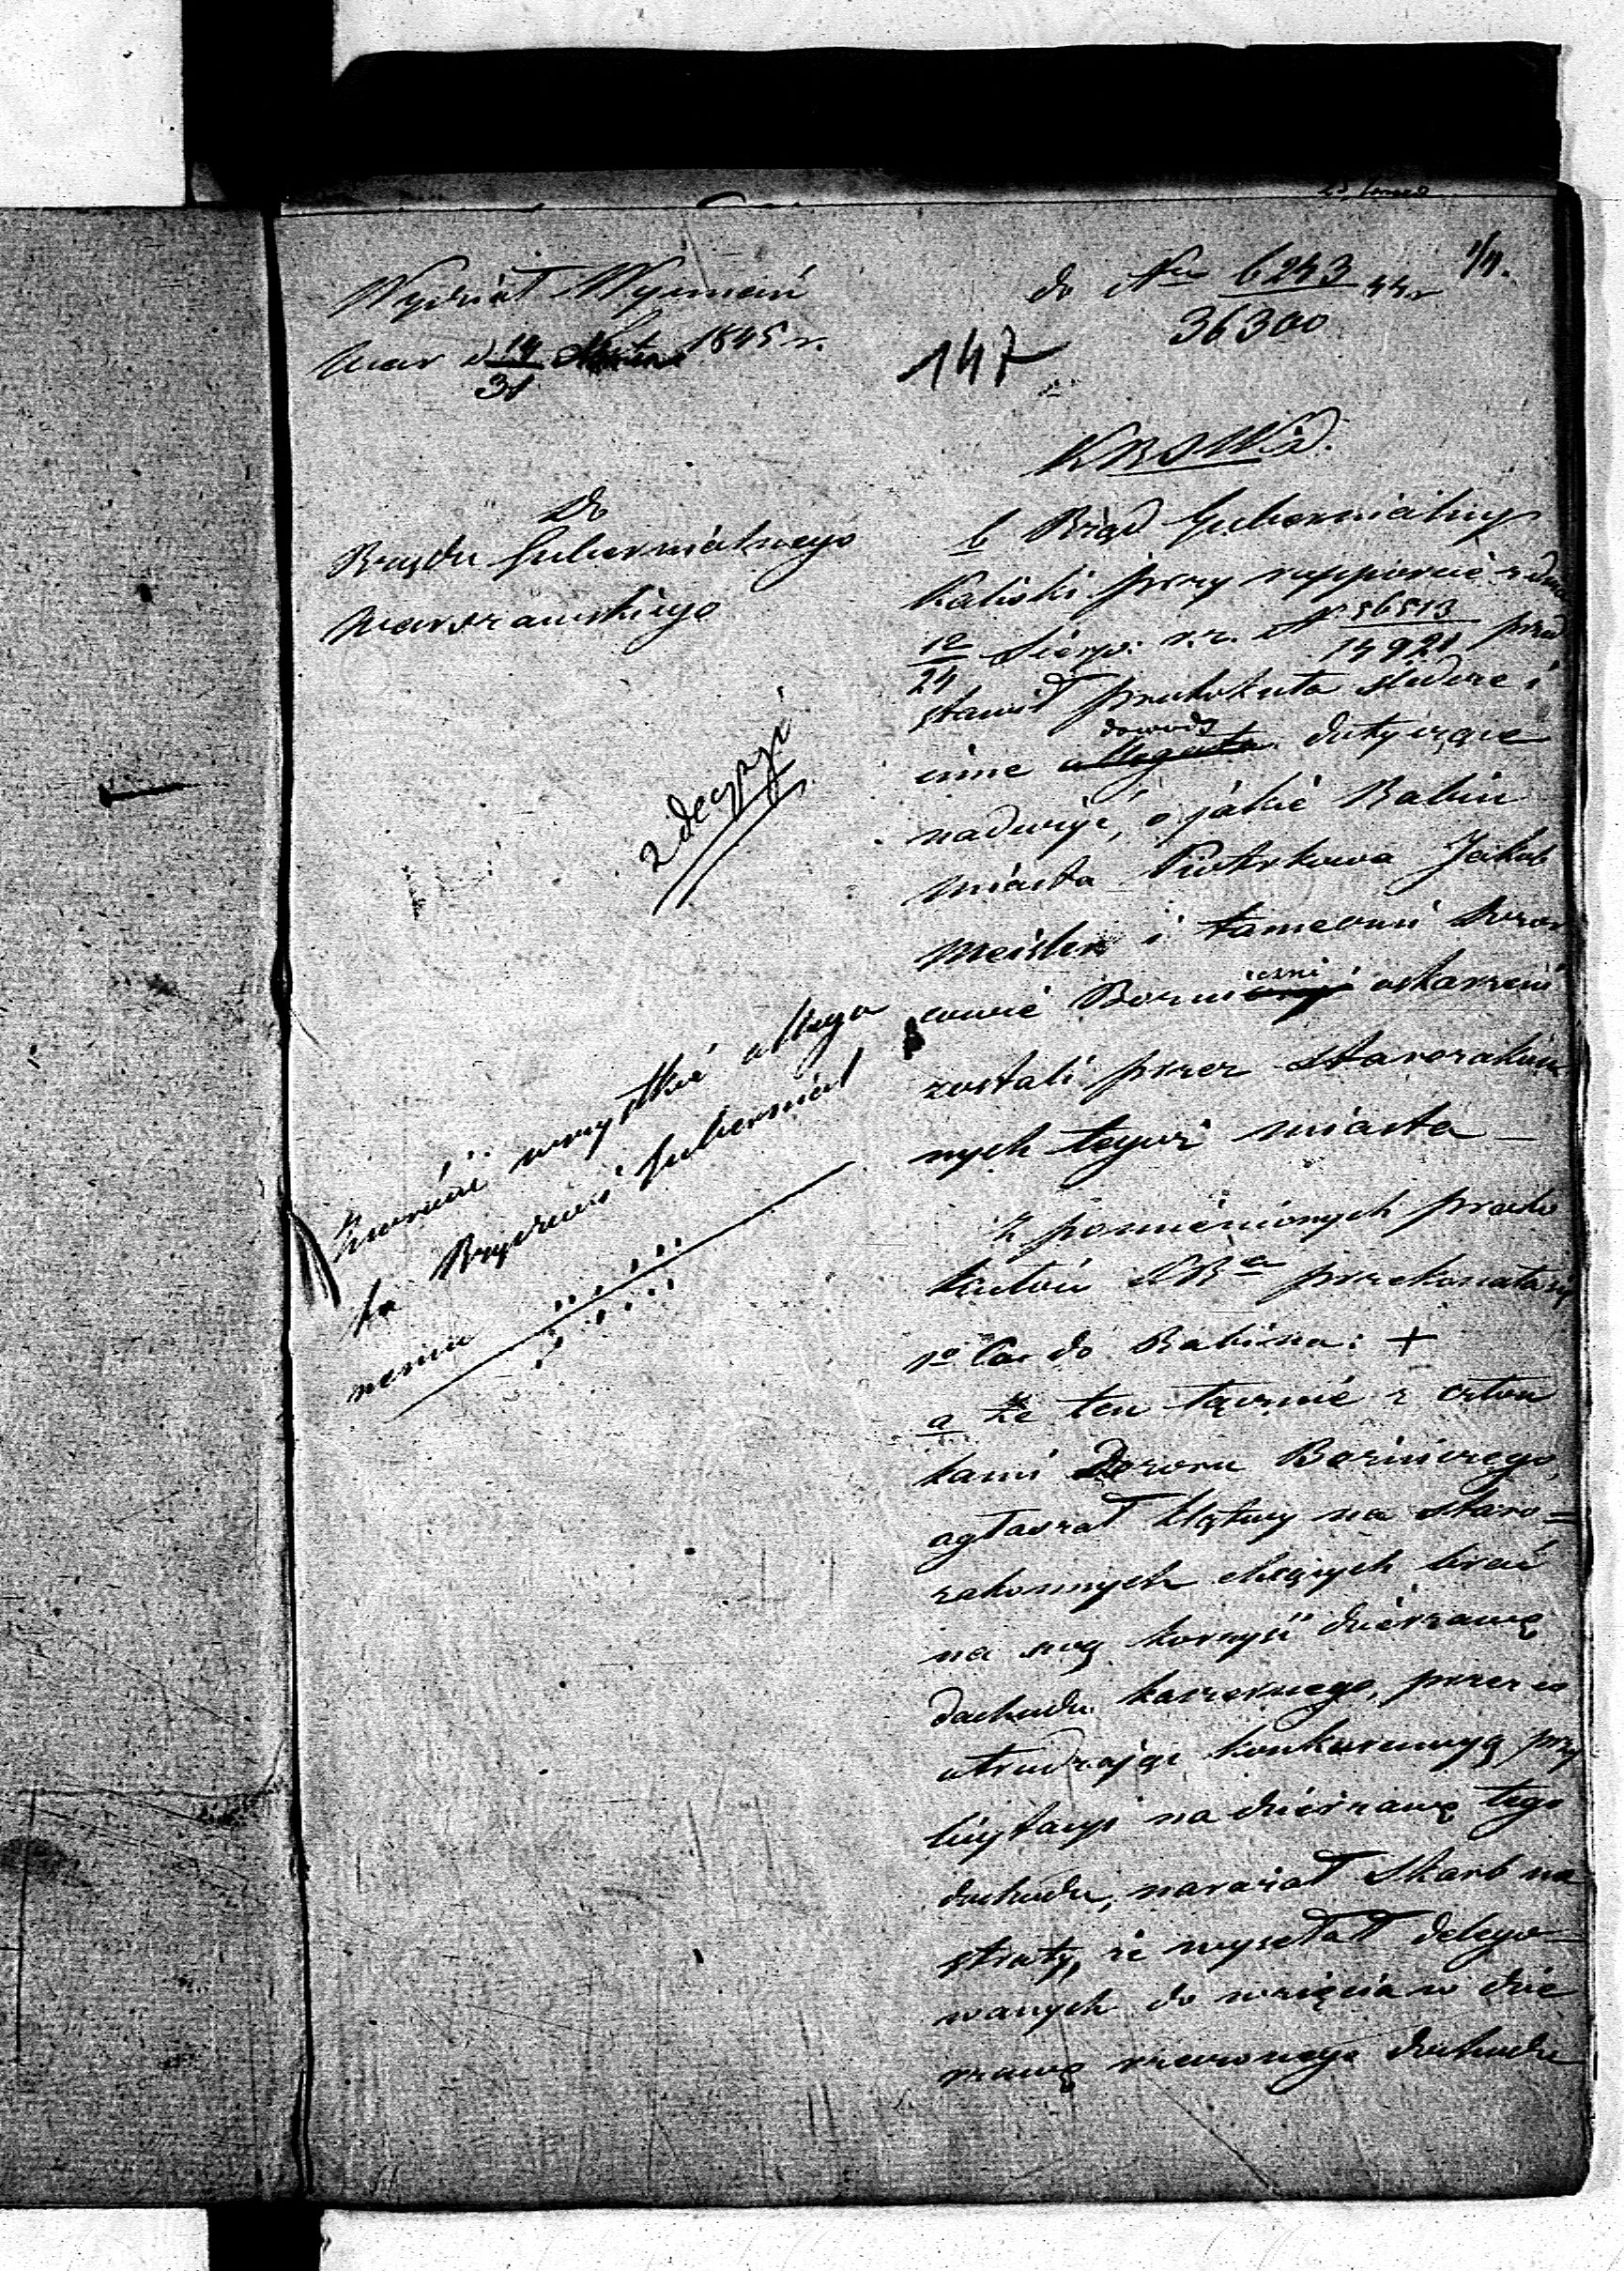 Wydział Wyznań
War d 19/31 1845 r.
do Nru 6243/36300 44 r
147
Do
Rządu Gubernialnego
Warszawskiego
2 decyzji
Zwrócić wszystkie allega
ta Rządowi Gubernial
nemu
KRSWiD.
b Rząd Gubernialny
Kaliski przy rapporcie z dnia
12/24 Sierp: r.z. N 56513/14921 przed
stawił protokuła śledcze i
inne allegata dowody dotyczące
nadużyć, o jakie Rabin
miasta Piotrkowa Jakób
Meisler i tameczni Dozor
cowie Bożniczni oskarżeni
zostali przez Starozakon
nych tegoż miasta
Z pomienionych proto
kułów KRa przekonała się
1o Co do Rabina: +
a że ten łącznie z człon
kami Dozoru Bożniczego,
ogłaszał klątwy na staro=
zakonnych chcących brać
na swą korzyść dzierżawę
dochodu koszernego, przez co
utrudzając konkurencyą przy
licytacyi na dzierżawę tego
dochodu, narażał Skarb na
straty, że wysełał delego=
wanych do wzięcia w dzie
rżawę rzeczonego dochodu